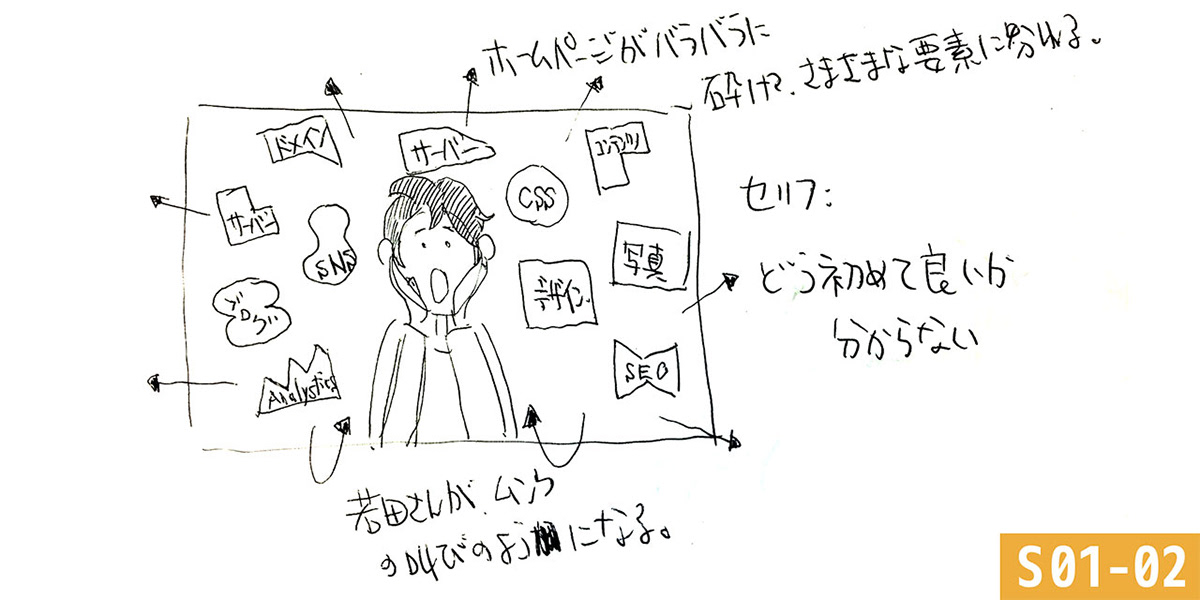 ホームページがバラバラに
砕け、さまざまな要素に分れる。
ドメイン
サーバー
コンテンツ
サーバー
SNS
CSS
写真
セリフ:
ブログ
デザイン
どう初めて良いか
分からない
Analystics
SEO
若田さんが、ムンク
の叫びのようになる。
S01-02